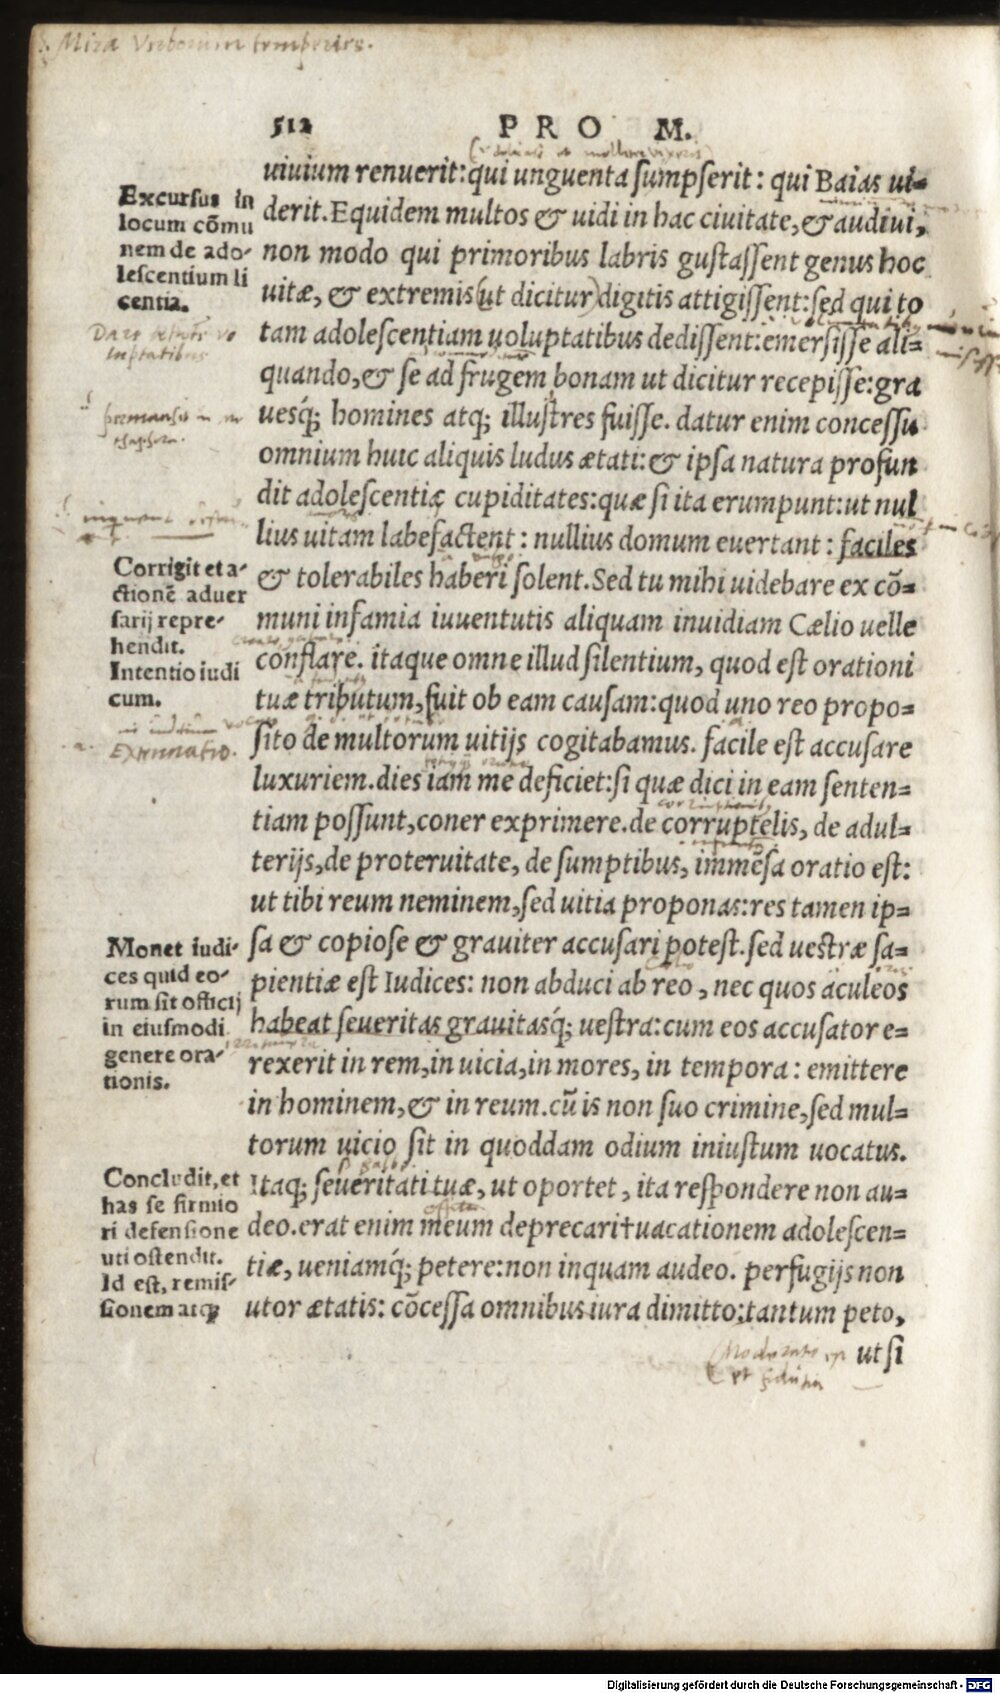 Mira Verborum temperies.
512
PRO M.
uiuium renuerit: qui unguenta sumpserit: qui Baias ui=
derit. Equidem multos & uidi in hac ciuitate, & audiui,
non modo qui primoribus labris gustassent genus hoc
uitæ, & extremis (ut dicitur) digitis attigissent: sed qui to
tam adolescentiam uoluptatibus dedissent: emersisse ali=
quando, & se ad frugem bonam ut dicitur recepisse: gra
uesq́; homines atq; illustres fuisse. datur enim concessu
omnium huic aliquis ludus ætati: & ipsa natura profun
dit adolescentię cupiditates: quæ si ita erumpunt: ut nul
lius uitam labefactent: nullius domum euertant: faciles
& tolerabiles haberi solent. Sed tu mihi uidebare ex cō=
muni infamia iuuentutis aliquam inuidiam Cælio uelle
conflare. itaque omne illud silentium, quod est orationi
tuæ tributum, fuit ob eam causam: quod uno reo propo=
sito de multorum uitijs cogitabamus. facile est accusare
luxuriem. dies iam me deficiet: si quæ dici in eam senten=
tiam possunt, coner exprimere. de corruptelis, de adul=
terijs, de proteruitate, de sumptibus, immēsa oratio est:
ut tibi reum neminem, sed uitia proponas: res tamen ip=
sa & copiose & grauiter accusari potest. sed uestræ sa=
pientiæ est Iudices: non abduci ab reo, nec quos aculeos
habeat seueritas grauitasq́; uestra: cum eos accusator e=
rexerit in rem, in uicia, in mores, in tempora: emittere
in hominem, & in reum. cū is non suo crimine, sed mul=
torum uicio sit in quoddam odium iniustum uocatus.
Itaq; seueritati tuæ, ut oportet, ita respondere non au=
deo. erat enim meum deprecari † uacationem adolescen=
tiæ, ueniamq́; petere: non inquam audeo. perfugijs non
utor ætatis: cōcessa omnibus iura dimitto: tantum peto,
ut si
Excursus in
locum cōmu
nem de ado-
lescentium li
centia.
Dare ætatis vo
luptatibus
Corrigit et a-
ctionē aduer
sarij repre-
hendit.
Intentio iudi
cum.
Extenuatio.
Monet iudi-
ces quid eo-
rum sit officij
in eiusmodi
genere ora-
tionis.
Concludit, et
has se firmio
ri defensione
uti ostendit.
Id est, remis-
sionem atq;
Digitalisierung gefördert durch die Deutsche Forschungsgemeinschaft - DFG